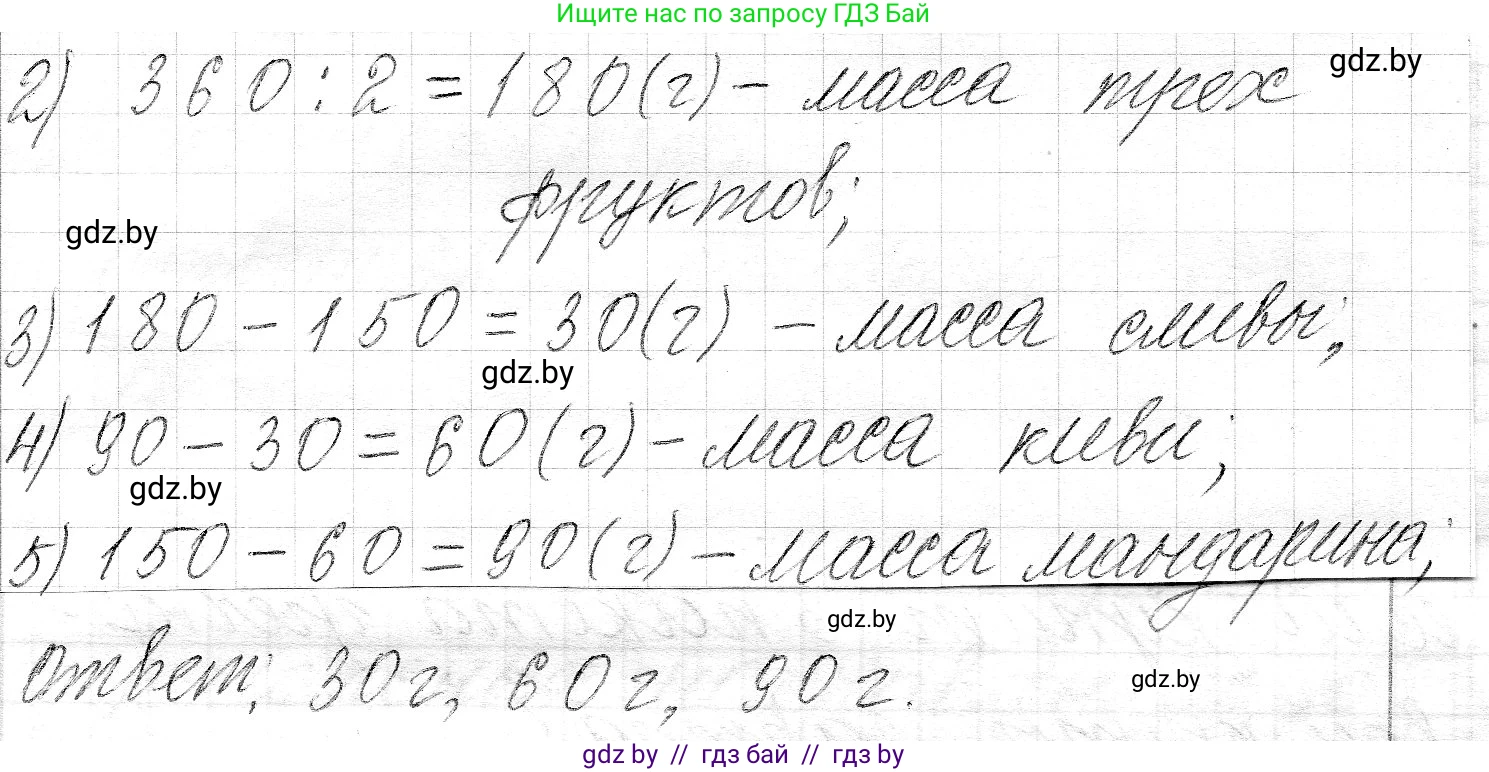 Ищите нас по запросу ГДЗ Бай
2) 360 : 2 = 180 (г) – масса трех
gdz.by
фруктов;
gdz.by
3) 180 – 150 = 30 (г) – масса сливы;
gdz.by
4) 90 – 30 = 60 (г) – масса киви;
gdz.by
5) 150 – 60 = 90 (г) – масса мандарина;
gdz.by
Ответ: 30 г, 60 г, 90 г.
gdz.by
gdz by // гдз бай // гдз by